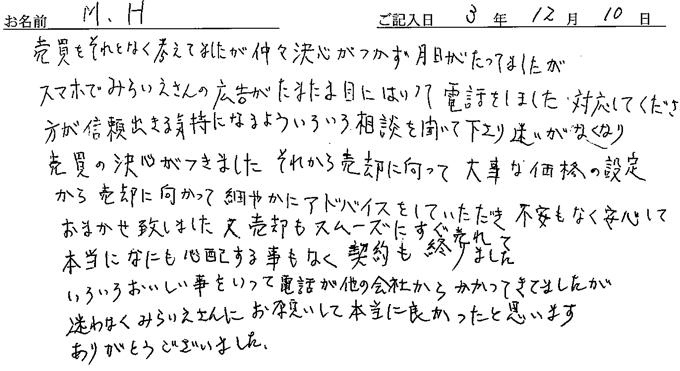 お名前 M.H ご記入日 3年 12月 10日
売買をそれとなく考えてましたが仲々決心がつかず月日がたってましたが
スマホでみらいえさんの広告がたまたま目にはいって電話をしました 対応してくださ
方が信頼出きる気持になるよういろいろ相談を聞いて下さり迷いがなくなり
売買の決心がつきました それから売却に向って大事な価格の設定
から売却に向かって細やかにアドバイスをしていただき不安もなく安心して
おまかせ致しました 又売却もスムーズにすぐ売れて
本当になにも心配する事もなく契約も終りました
いろいろおいしい事をいって電話が他の会社からかかってきてましたが
迷わなくみらいえさんにお願いして本当に良かったと思います
ありがとうございました。